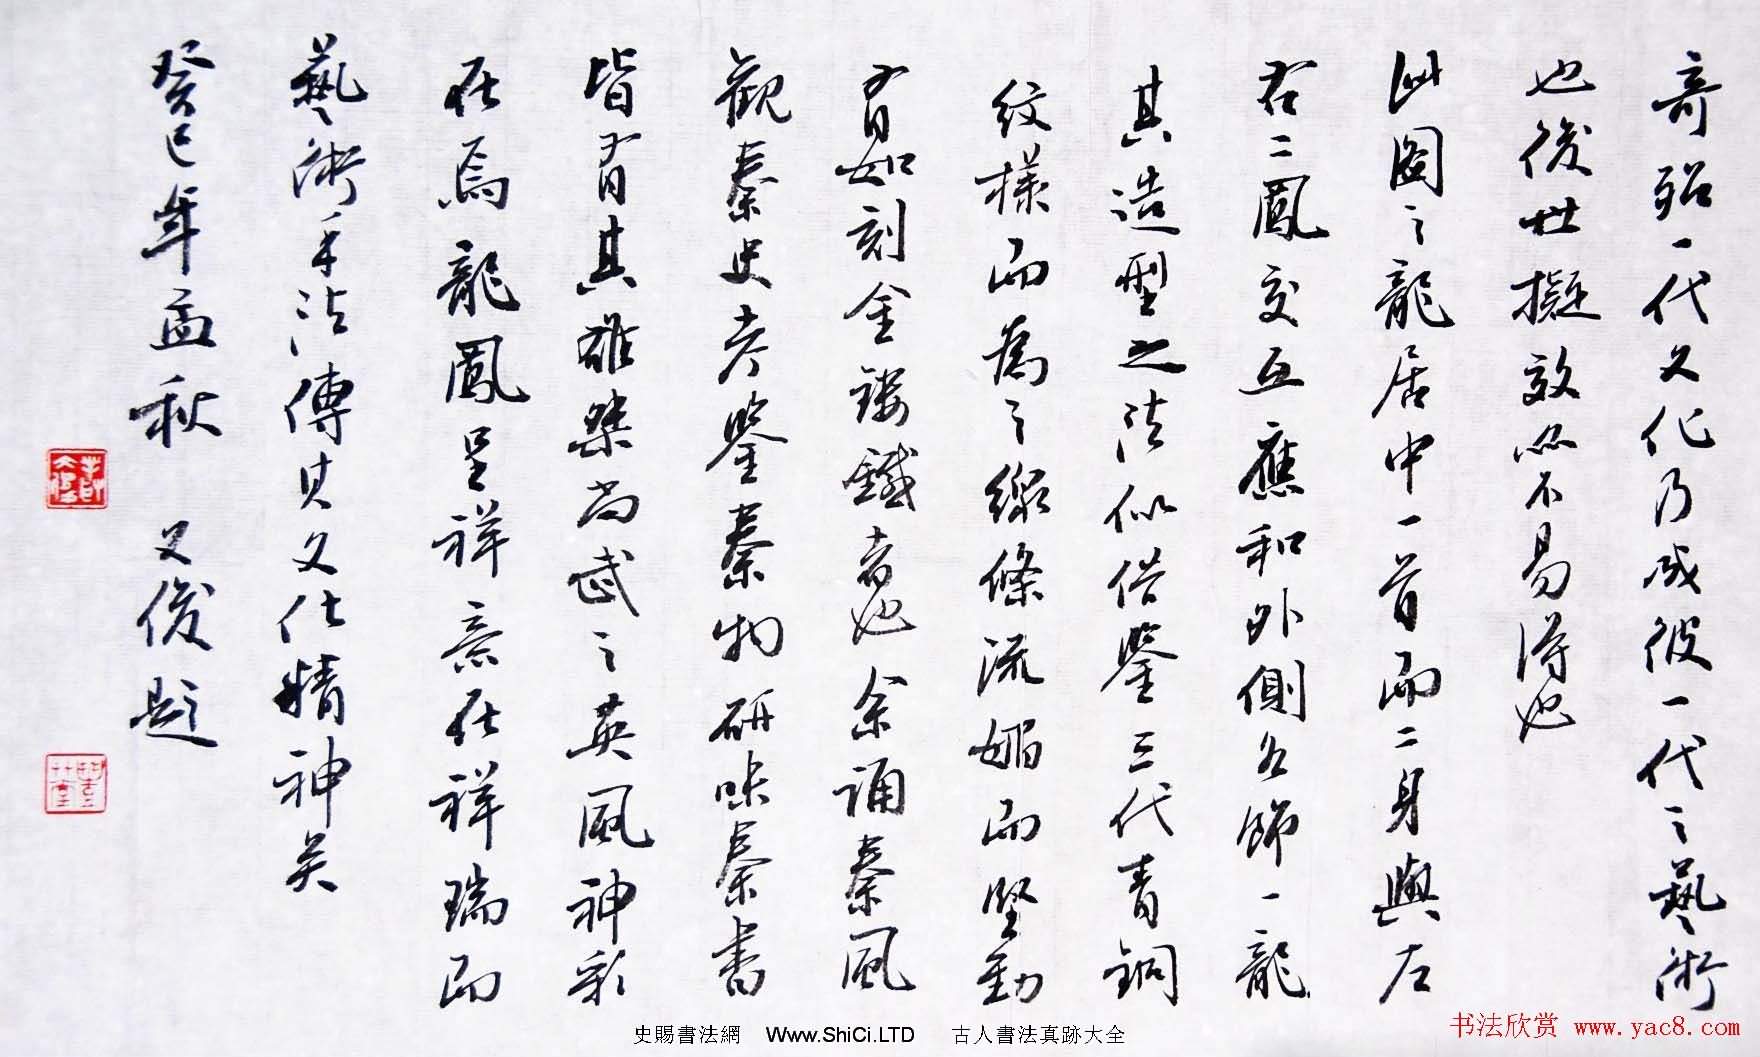 奇殆一代文化乃成彼一代之藝術
也後世擬效必不易得也
此圖之龍居中一首而二身與左
右二鳳交互應和外側各飾一龍
其造型之法似借鑒三代青銅
紋樣而為之線條流媚而堅勁
有如刻金鏤鐵者也余誦秦風
觀秦史考鑒秦物研味秦書
皆有其雄桀尚武之英風神彩
在焉龍鳳呈祥意在祥瑞而
藝術手法傳其文化精神矣
癸巳年孟秋 文俊題
史賜書法網 Www.ShiCi.LTD 古人書法真跡大全
书法欣赏 www.yac8.com